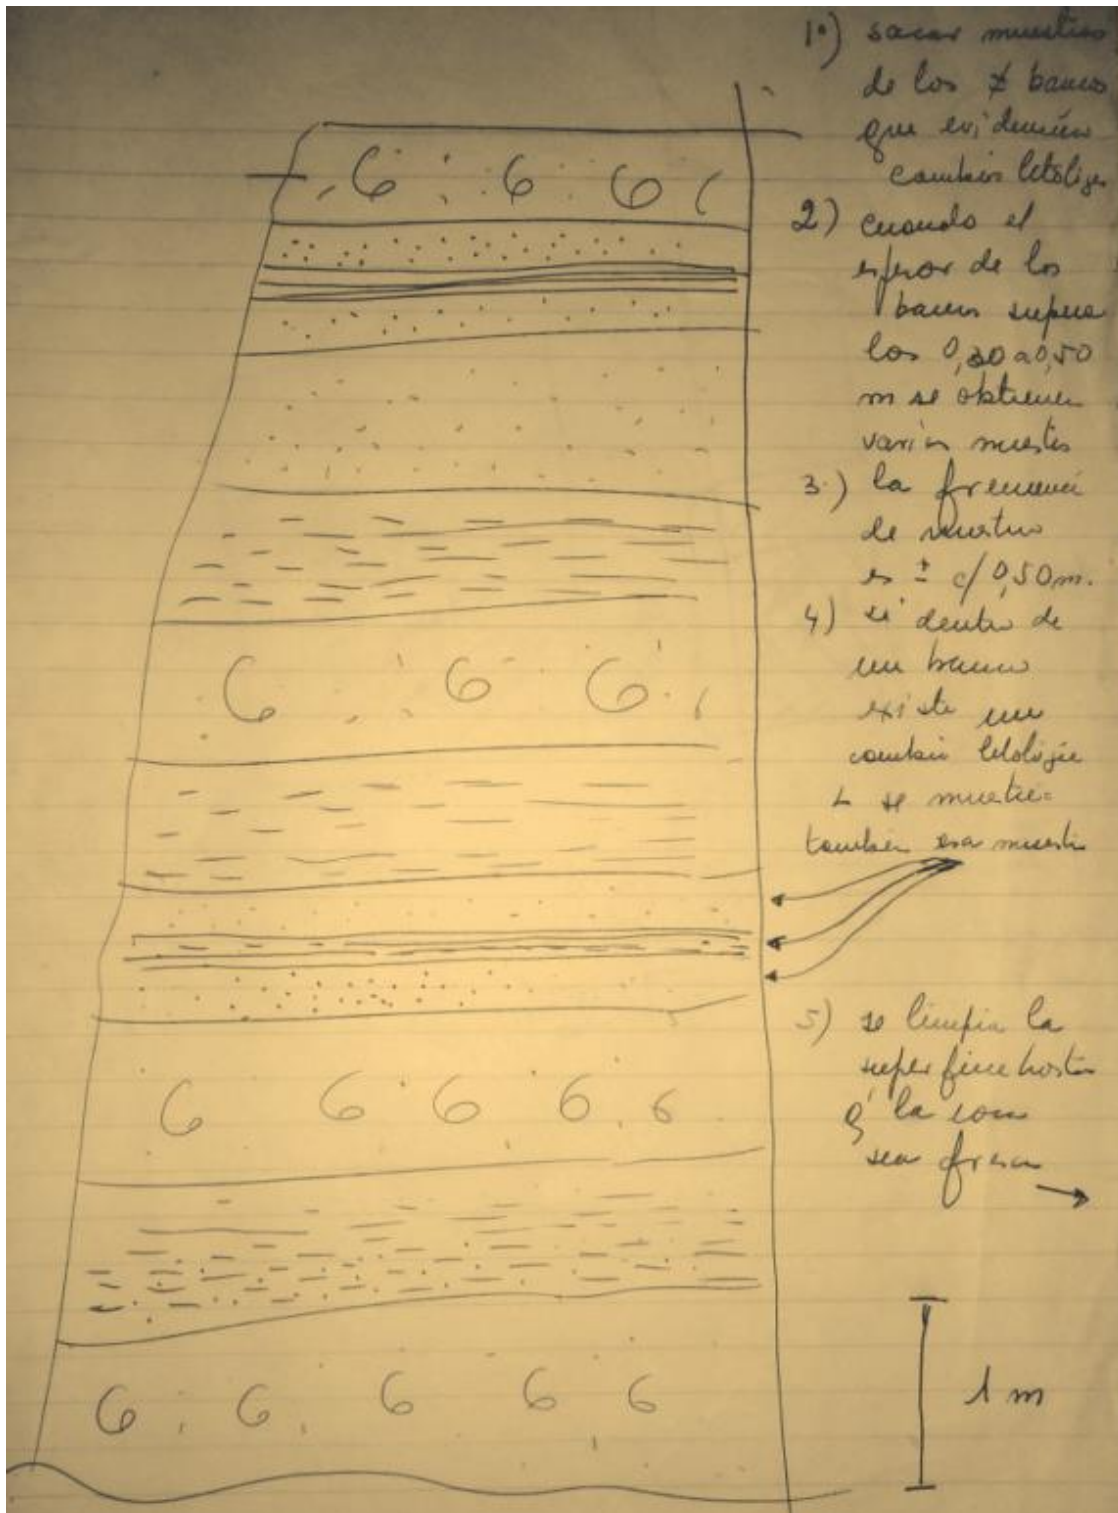 1º) sacar muestras
de los ≠ bancos
que evidencien
cambios litológicos
2) cuando el
espesor de los
bancos supera
los 0,30 a 0,50
m se obtienen
varias muestras
3.) la frecuencia
de muestreo
es ± c/ 0,50 m.
4) si dentro de
un banco
existe un
cambio litológico
se muestrea
también esa muestra
5) se limpia la
superficie hasta
q' la
sea fresca
1 m